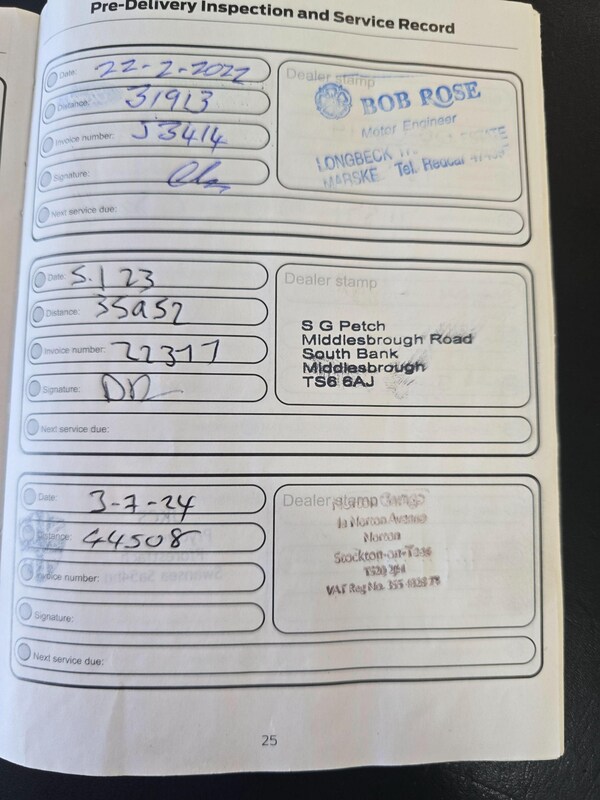 Pre-Delivery Inspection and Service Record
Date: 22-2-2022
Distance: 31913
Invoice number: 53414
Signature:
Next service due:
Dealer stamp
BOB ROSE
Motor Engineer
LONGBECK
MARSKE Tel. Redcar
Date: 5.1 23
Distance: 35952
Invoice number: 22377
Signature:
Next service due:
Dealer stamp
S G Petch
Middlesbrough Road
South Bank
Middlesbrough
TS6 6AJ
Date: 3-7-24
Distance: 44508
Invoice number:
Signature:
Next service due:
Dealer stamp
Norton Avenue
Norton
Stockton-on-Tees
TS20
VAT Reg No. 355
25